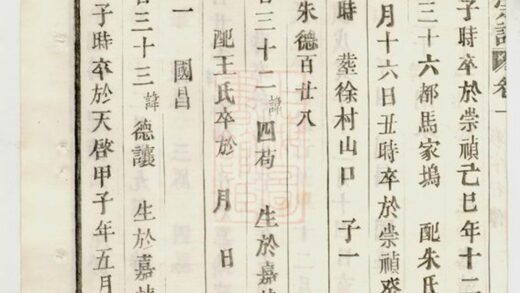 譜 卷一
子時卒於崇禎己巳年十二
三十六都馬家塢 配朱氏
月十六日丑時卒於崇禎癸
時 塟徐村山口 子一
朱德百廿八
三十二 諱四苟 生於嘉
配王氏卒於 月 日
一 國昌
三十三 諱德讓 生於嘉
子時卒於天啓甲子年五月